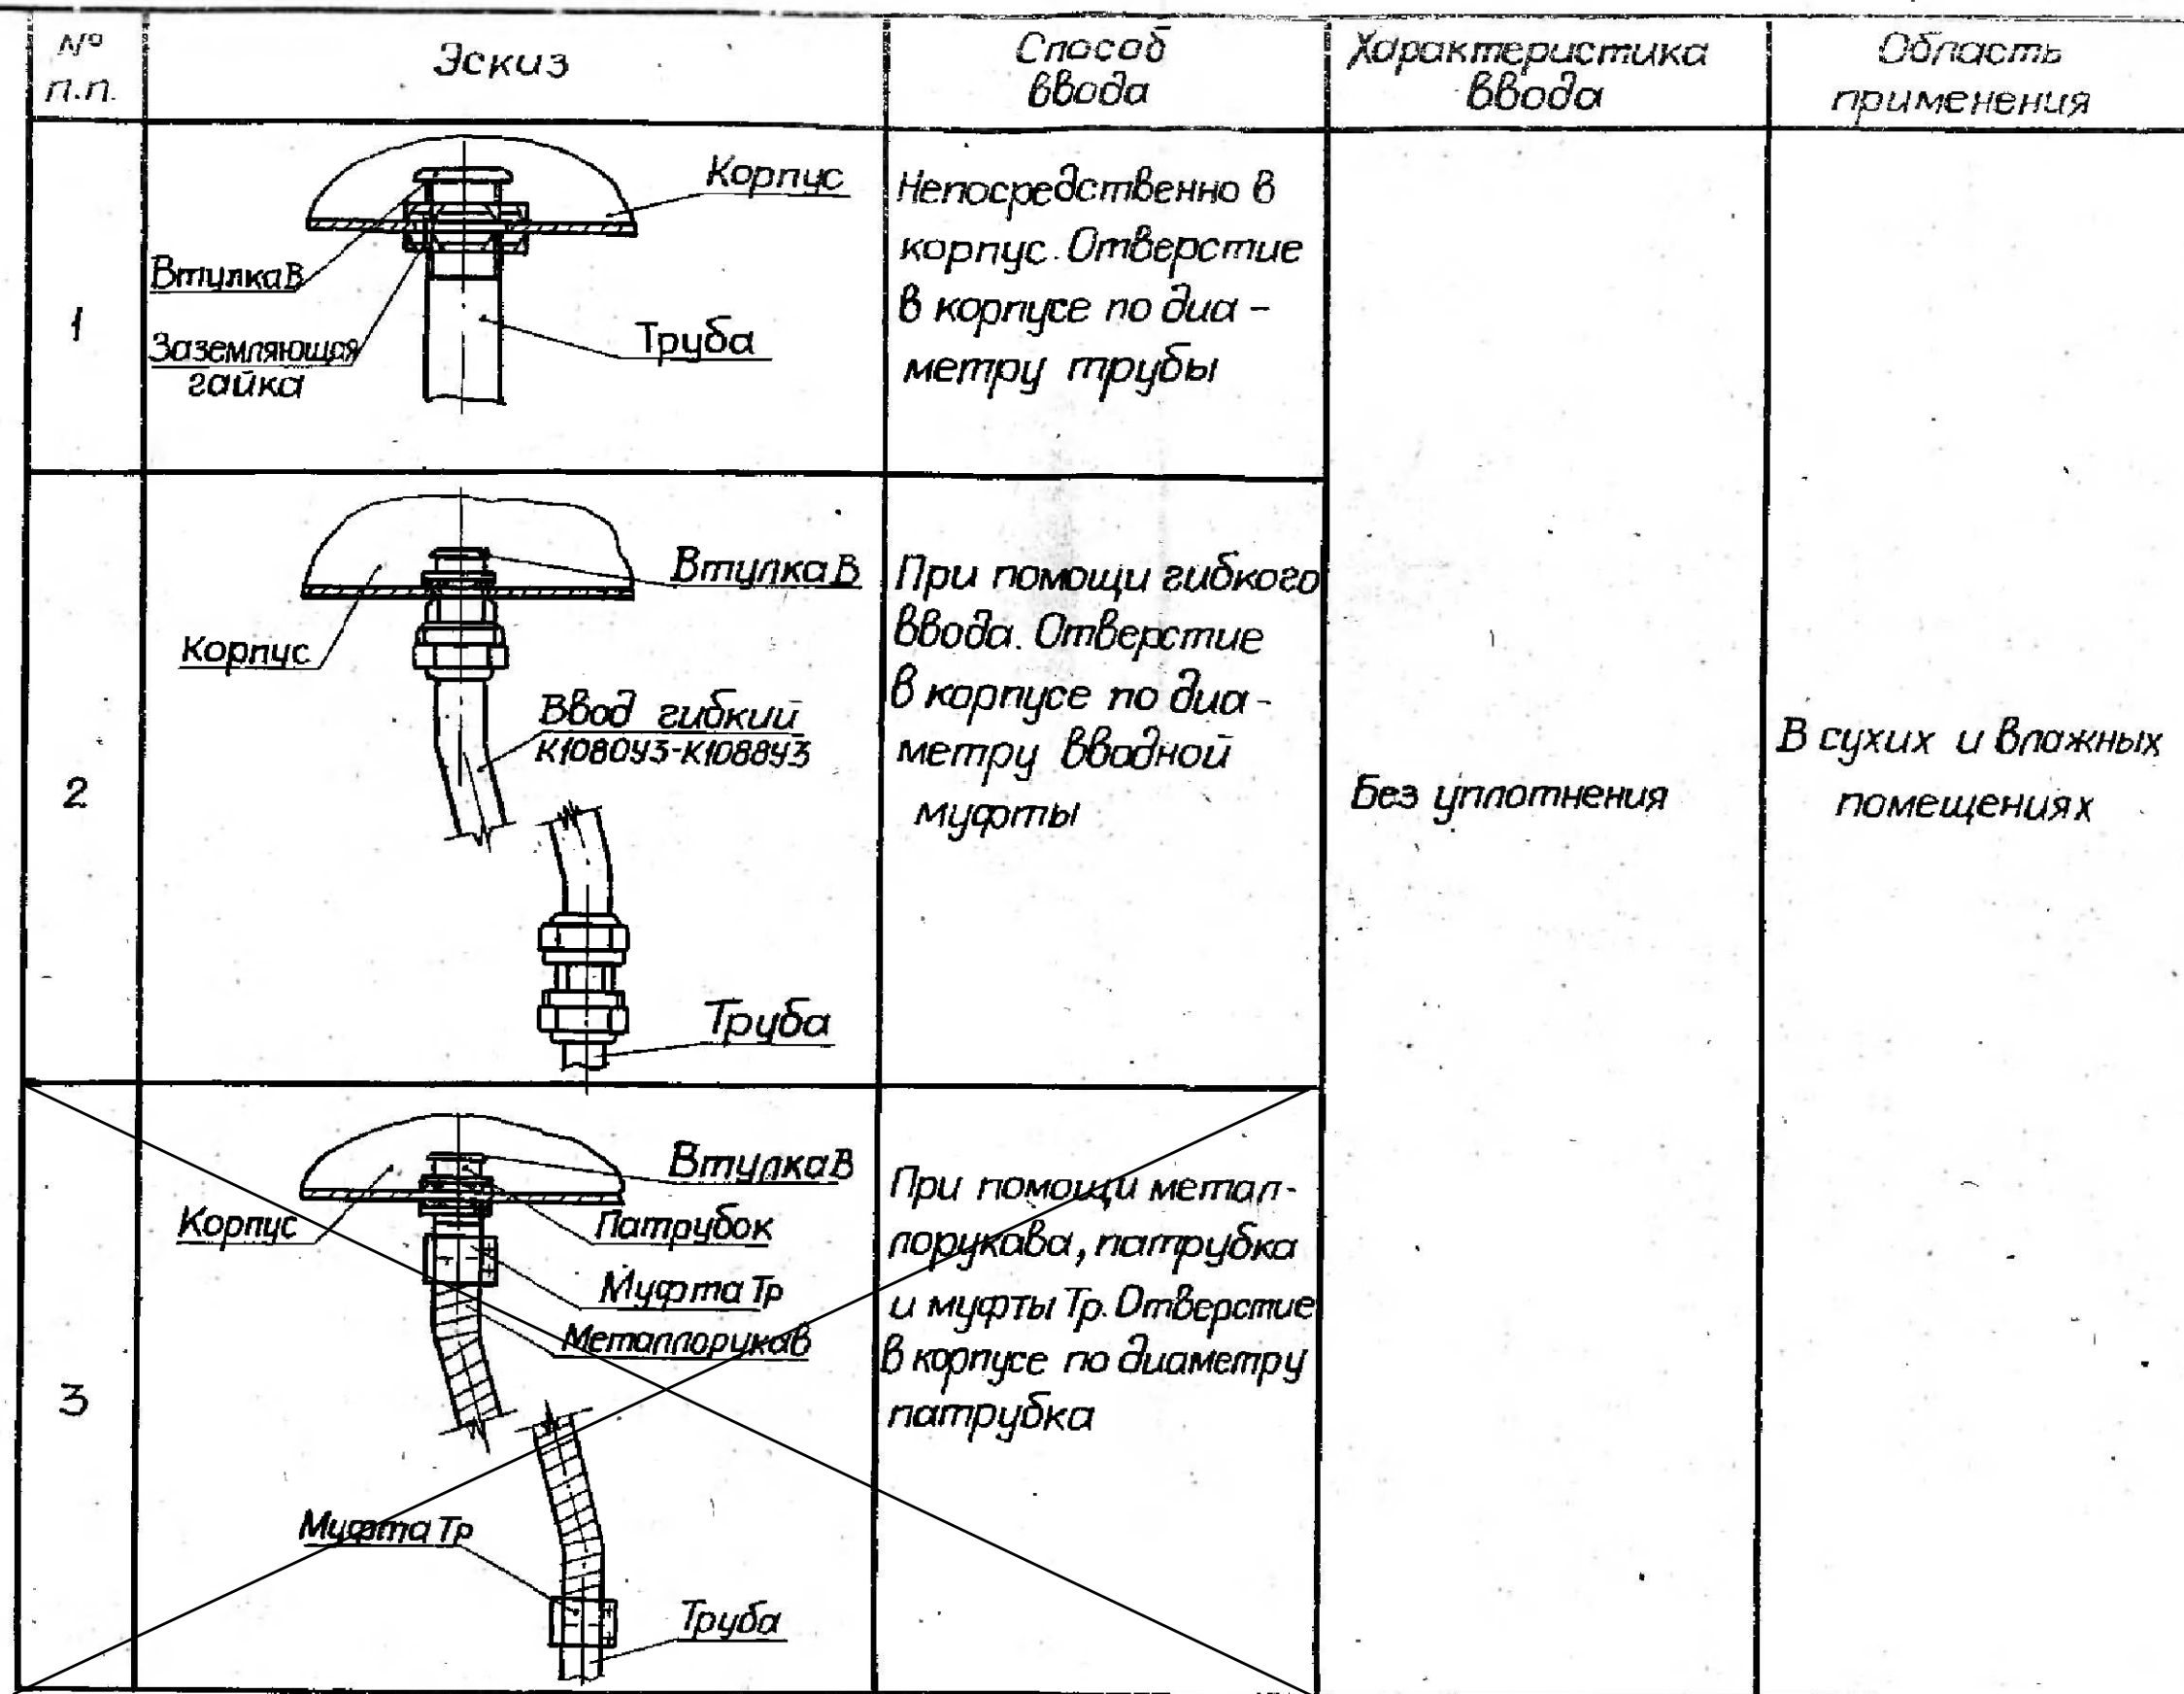 № п.п.
Эскиз
Способ ввода
Характеристика ввода
Область применения
1
Корпус
Втулка В
Заземляющая
гайка
Труба
Непосредственно в
корпус. Отверстие
в корпусе по диа-
метру трубы
2
Втулка В
Корпус
Ввод гибкий
К1080У3-К1088У3
Труба
При помощи гибкого
ввода. Отверстие
в корпусе по диа-
метру вводной
муфты
Без уплотнения
В сухих и влажных
помещениях
3
Втулка В
Корпус
Патрубок
Муфта Тр
Металлорукав
Муфта Тр
Труба
При помощи метал-
лорукава, патрубка
и муфты Тр. Отверстие
в корпусе по диаметру
патрубка